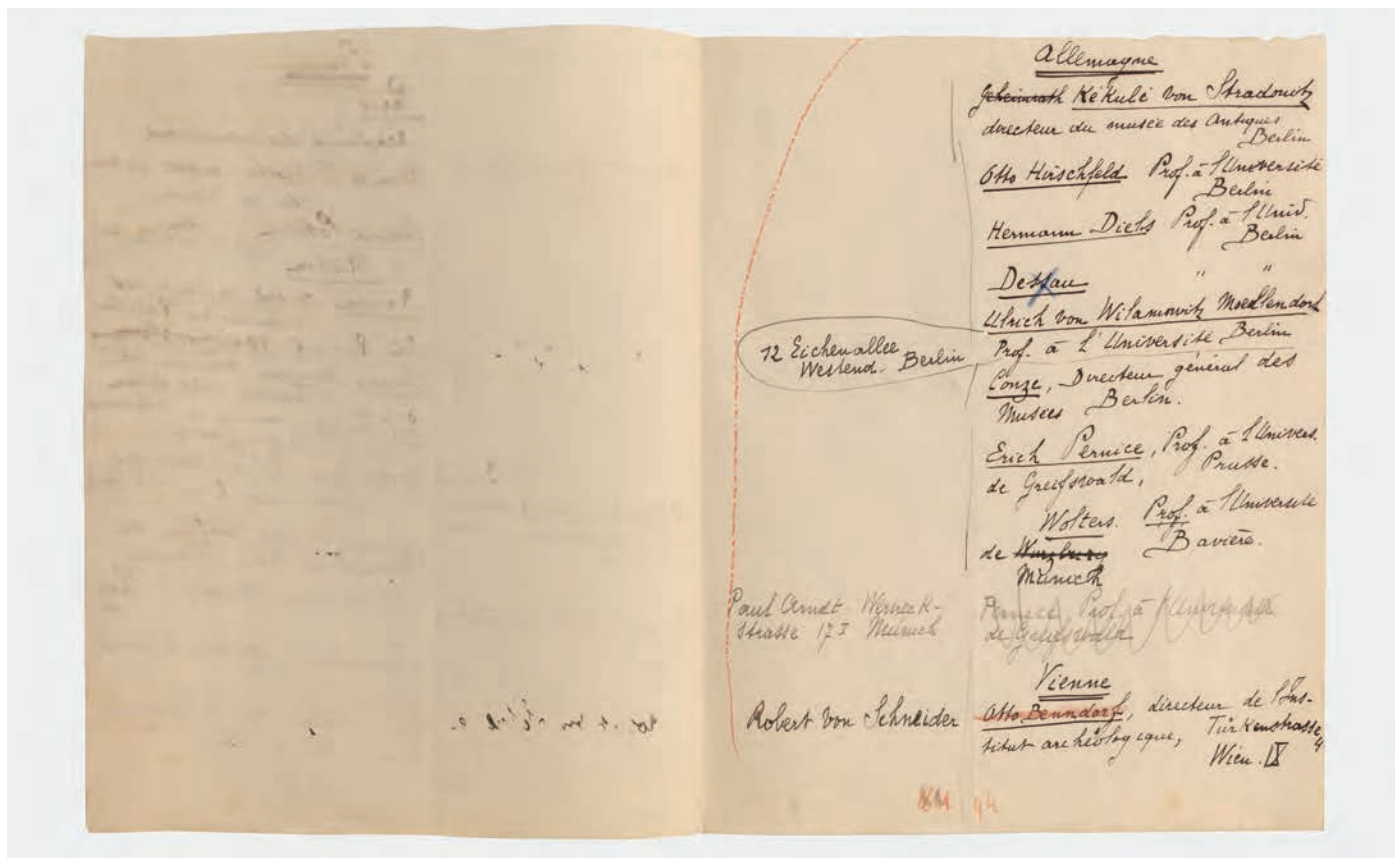 Allemagne
Geheimrath Kékulé von Stradowitz
directeur du musée des Antiques
Berlin
Otto Hirschfeld Prof. à l'Université
Berlin
Hermann Diels Prof. à l'Univ.
Berlin
Dessau " "
Ulrich von Wilamowitz Moedlendorf
12 Eichenallee
Westend. Berlin
Prof. à L'Université Berlin
Conze, Directeur général des
Musées Berlin.
Erich Pernice, Prof. à l'Univers.
de Greifswald, Prusse.
Wolters. Prof. à l'Université
de Wurzburg Bavière.
Munich
Paul Arndt
Strasse 173 Munich
Pernice Prof. à l'Université
de Greifswald
Vienne
Robert von Schneider
Otto Benndorf, directeur de l'Ins-
titut archéologique, Türkenstrasse 4
Wien. IX